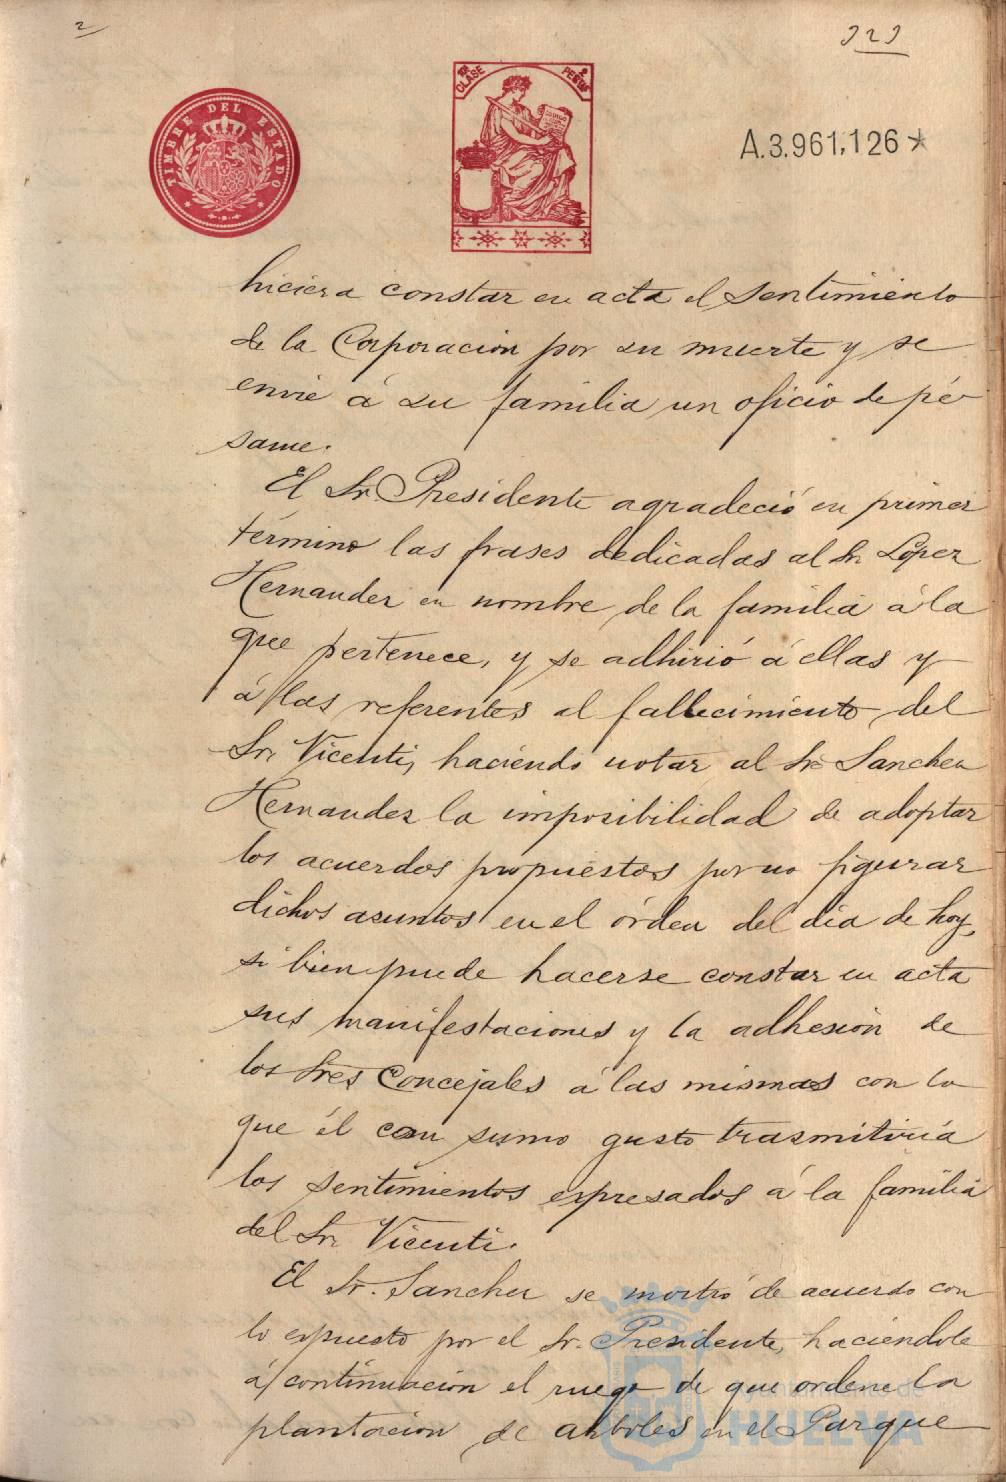 2
323
TIMBRE DEL ESTADO
10ª CLASE
2 PESETAS
A.3.961,126*
hiciera constar en acta el sentimiento
de la Corporación por su muerte y se
envie á su familia un oficio de pé-
same.
El Sr. Presidente agradeció en primer
término las frases dedicadas al Sr López
Hernandez en nombre de la familia á la
que pertenece, y se adhirió á ellas y
á las referentes al fallecimiento del
Sr. Vicenti, haciendo notar al Sr. Sanchez
Hernandez la imposibilidad de adoptar
los acuerdos propuestos por no figurar
dichos asuntos en el órden del dia de hoy,
si bien puede hacerse constar en acta
sus manifestaciones y la adhesión de
los Sres Concejales á las mismas con lo
que él con sumo gusto trasmitiría
los sentimientos expresados á la familia
del Sr. Vicenti.
El Sr. Sanchez se mostró de acuerdo con
lo expuesto por el Sr. Presidente, haciéndole
á continuación el ruego de que ordene la
plantacion de arboles en el Parque
Ayuntamiento de
HUELVA